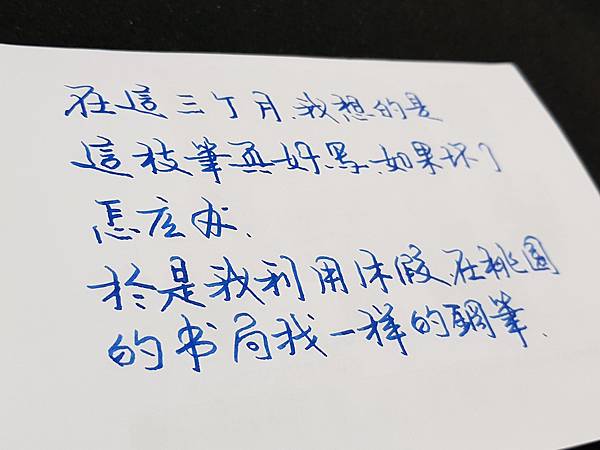 在這三个月,我想的是
這枝筆真好寫,如果坏了
怎庅办.
於是我利用休假,在桃園
的书局找一样的鋼筆.